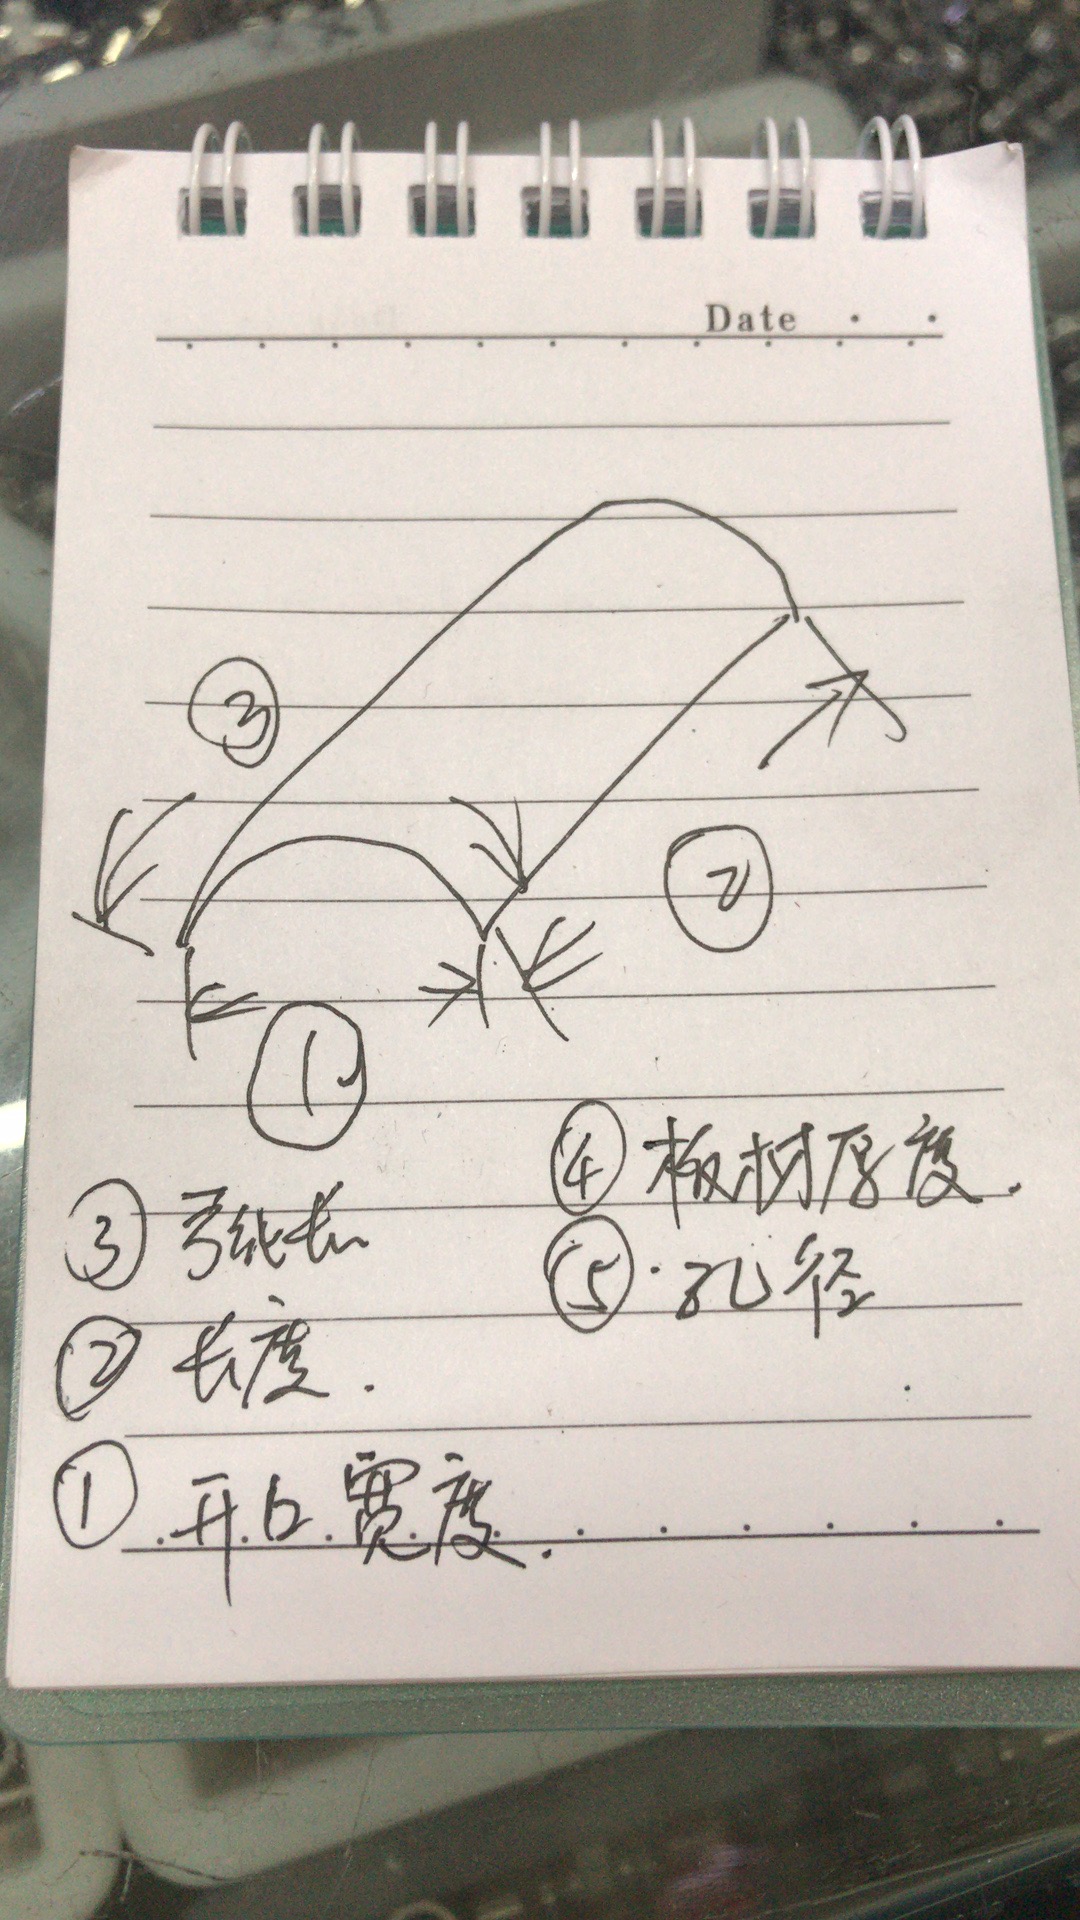 Date
③
②
①
④ 板材厚度.
③ 弓线长
⑤·孔径
② 长度.
① 开口宽度.